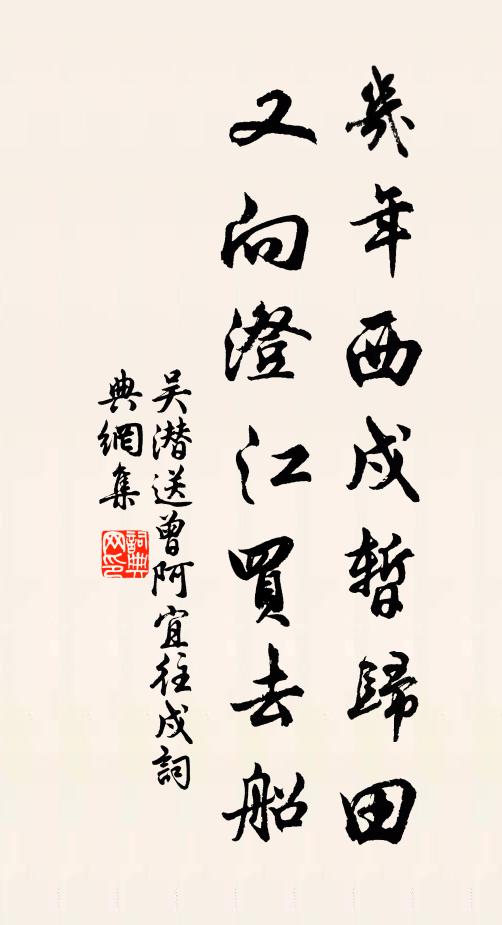 幾年西戍暫歸田
又向澄江買去船
吴潜送曾阿宜往戍詞
典網集
詞典
网印